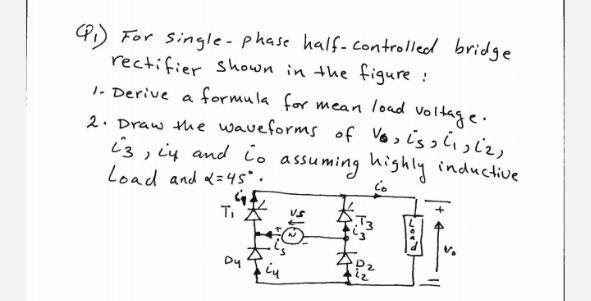 Q1) For single-phase half-controlled bridge
rectifier shown in the figure :
1- Derive a formula for mean load voltage.
2. Draw the waveforms of Vo, is, i1, i2,
i3, i4 and io assuming highly inductive
Load and α=45°.
io
i1
T1
vs
T3
i3
+
is
Load
vo
D4
i4
D2
i2